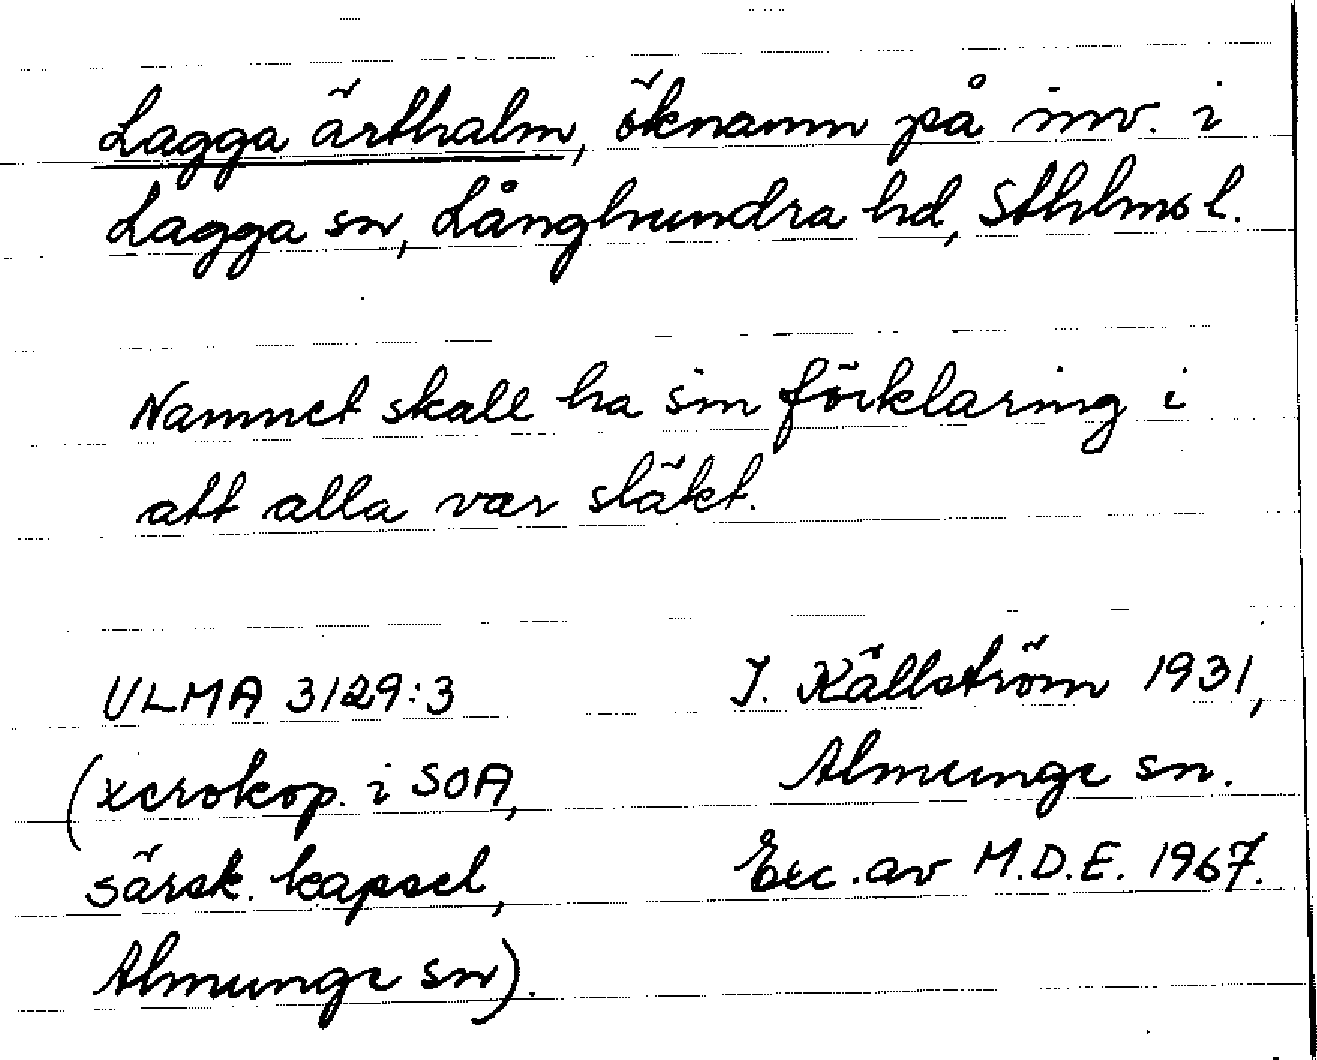 Lagga ärthalm, öknamn på inv. i
Lagga sn, Långhundra hd, Sthlms l.
Namnet skall ha sin förklaring i
att alla var släkt.
ULMA 3129:3
(xerokop. i SOA,
särsk. kapsel,
Almunge sn).
J. Källström 1931,
Almunge sn.
Exc. av M.D.E. 1967.